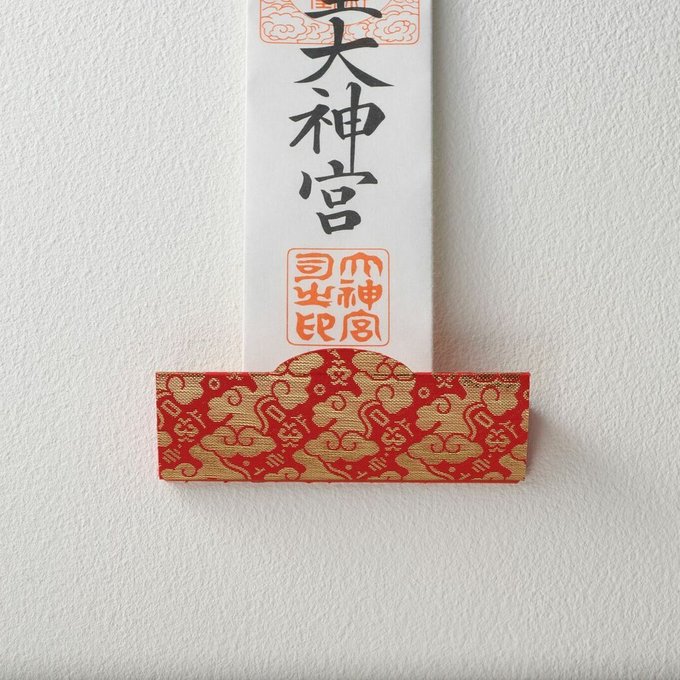 大神宮
大神宮
司之印